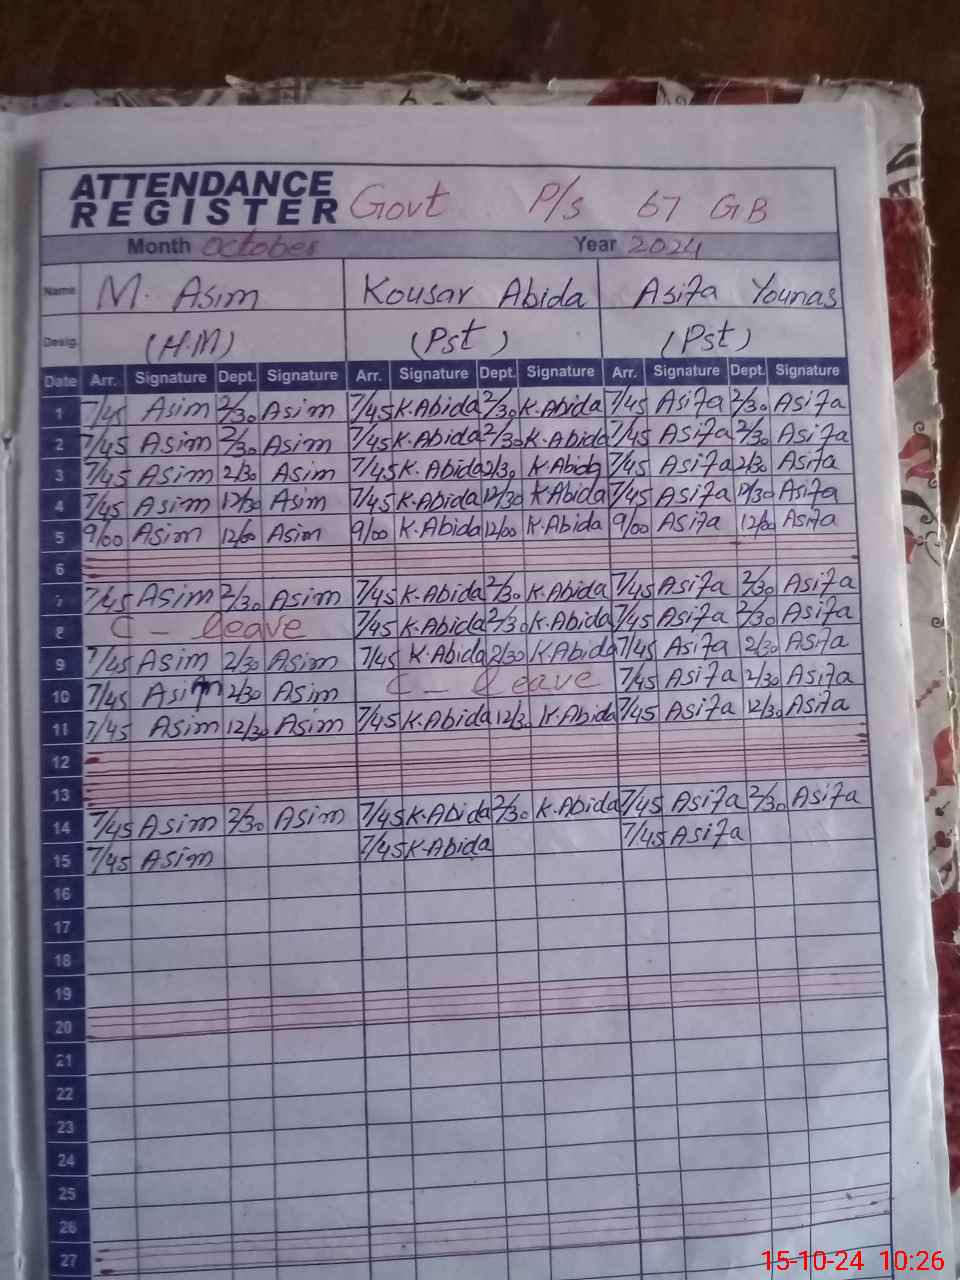 ATTENDANCE
REGISTER Govt P/s 67 GB
Month October Year 2024
Name M. Asim Kousar Abida Asifa Younas
Desig. (H.M) (Pst) (Pst)
Date Arr. Signature Dept. Signature Arr. Signature Dept. Signature Arr. Signature Dept. Signature
1 7/45 Asim 2/30 Asim 7/45 K.Abida 2/30 K.Abida 7/45 Asifa 2/30 Asifa
2 7/45 Asim 2/30 Asim 7/45 K.Abida 2/30 K.Abida 7/45 Asifa 2/30 Asifa
3 7/45 Asim 2/30 Asim 7/45 K.Abida 2/30 K.Abida 7/45 Asifa 2/30 Asifa
4 7/45 Asim 12/30 Asim 7/45 K.Abida 12/30 K.Abida 7/45 Asifa 12/30 Asifa
5 9/00 Asim 12/00 Asim 9/00 K.Abida 12/00 K.Abida 9/00 Asifa 12/00 Asifa
6
7 7/45 Asim 2/30 Asim 7/45 K.Abida 2/30 K.Abida 7/45 Asifa 2/30 Asifa
8 C - leave 7/45 K.Abida 2/30 K.Abida 7/45 Asifa 2/30 Asifa
9 7/45 Asim 2/30 Asim 7/45 K.Abida 2/30 K.Abida 7/45 Asifa 2/30 Asifa
10 7/45 Asim 2/30 Asim C - leave 7/45 Asifa 2/30 Asifa
11 7/45 Asim 12/30 Asim 7/45 K.Abida 12/30 K.Abida 7/45 Asifa 12/30 Asifa
12
13
14 7/45 Asim 2/30 Asim 7/45 K.Abida 2/30 K.Abida 7/45 Asifa 2/30 Asifa
15 7/45 Asim 7/45 K.Abida 7/45 Asifa
16
17
18
19
20
21
22
23
24
25
26
27
15-10-24 10:26